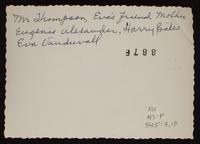 Mr Thompson, Eva's friend Mother
Eugenie Alexander, Harry Bates
Eva Vanduvall
388F
KH
H3-P
545.9.18